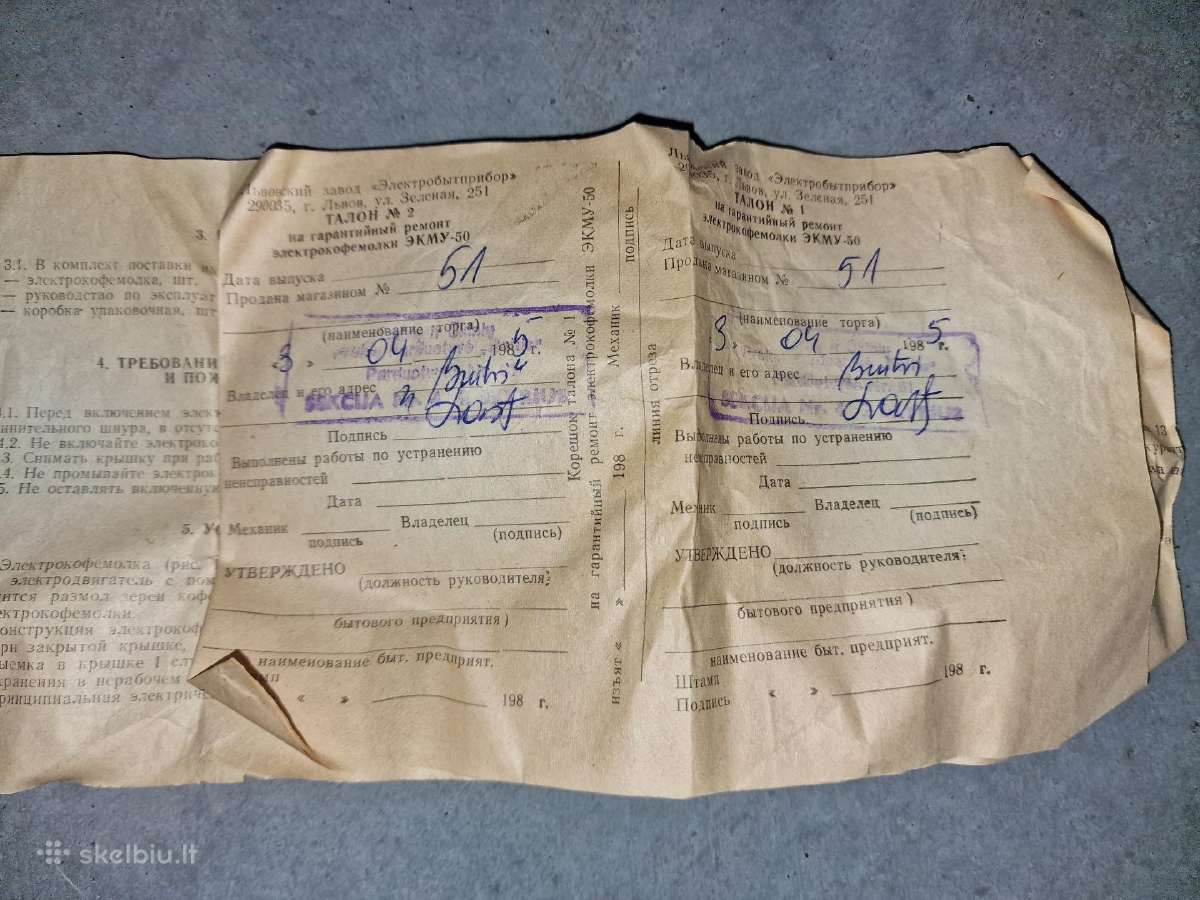 3.
3.1. В комплект поставки
— электрокофемолка, шт.
— руководство по эксплуат
— коробка упаковочная, шт
4. ТРЕБОВАНИ
И ПОЖ
4.1. Перед включением элек
динительного шнура, в отсут
4.2. Не включайте электроко
4.3. Снимать крышку при раб
4.4. Не промывайте электрок
5. Не оставлять включенную
5. У
Электрокофемолка (рис.
электродвигатель с пом
ится размол зерен коф
ектрокофемолки.
онструкция электрокоф
ри закрытой крышке,
ыемка в крышке 1 слу
хранения в нерабочем
ринципиальная электриче
Львовский завод «Электробытприбор»
290035, г. Львов, ул. Зеленая, 251
ТАЛОН № 2
на гарантийный ремонт
электрокофемолки ЭКМУ-50
Дата выпуска
Продана магазином № 51
(наименование торга)
«3» 04 1985 г.
Владелец и его адрес
SEKCIJA
Подпись
Выполнены работы по устранению
неисправностей
Дата
Механик Владелец
подпись (подпись)
УТВЕРЖДЕНО
(должность руководителя;
бытового предприятия)
наименование быт. предприят.
« » 198 г.
Корешок талона № 1
на гарантийный ремонт электрокофемолки ЭКМУ-50
изъят « » 198 г. Механик подпись
линия отреза
Львовский завод «Электробытприбор»
290035, г. Львов, ул. Зеленая, 251
ТАЛОН № 1
на гарантийный ремонт
электрокофемолки ЭКМУ-50
Дата выпуска
Продана магазином № 51
(наименование торга)
3 04 1985 г.
Владелец и его адрес
SEKCIJA Nr.
Подпись
Выполнены работы по устранению
неисправностей
Дата
Механик Владелец
подпись (подпись)
УТВЕРЖДЕНО
(должность руководителя;
бытового предприятия)
наименование быт. предприят.
Штамп « » 198 г.
Подпись
13
skelbiu.lt